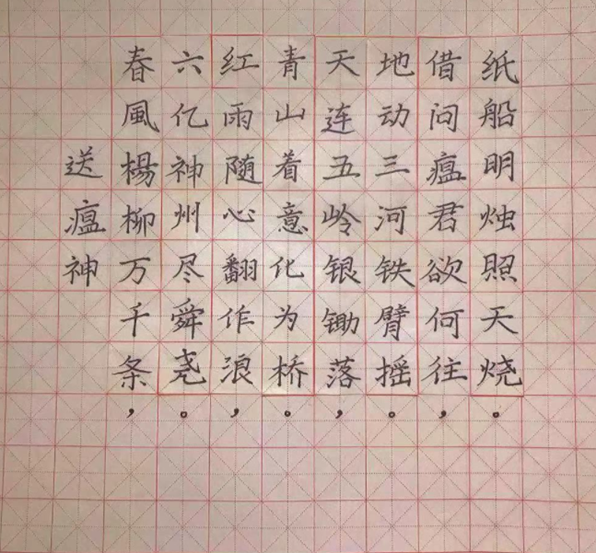 送瘟神
春風楊柳万千条，
六亿神州尽舜尧。
红雨随心翻作浪，
青山着意化为桥。
天连五岭银锄落，
地动三河铁臂摇。
借问瘟君欲何往，
纸船明烛照天烧。